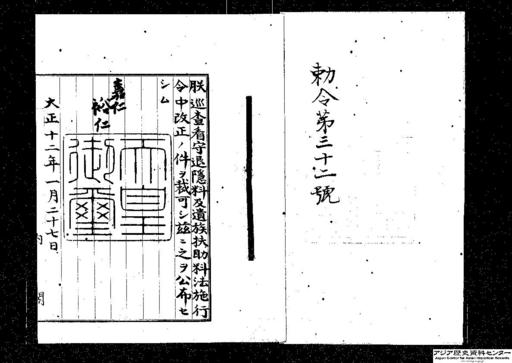 勅令第三十二號
朕巡査看守退隠料及遺族扶助料法施行
令中改正ノ件ヲ裁可シ茲ニ之ヲ公布セ
シム
嘉仁
裕仁
天皇
御璽
大正十二年一月二十七日
内閣
アジア歴史資料センター
Japan Center for Asian Historical Records